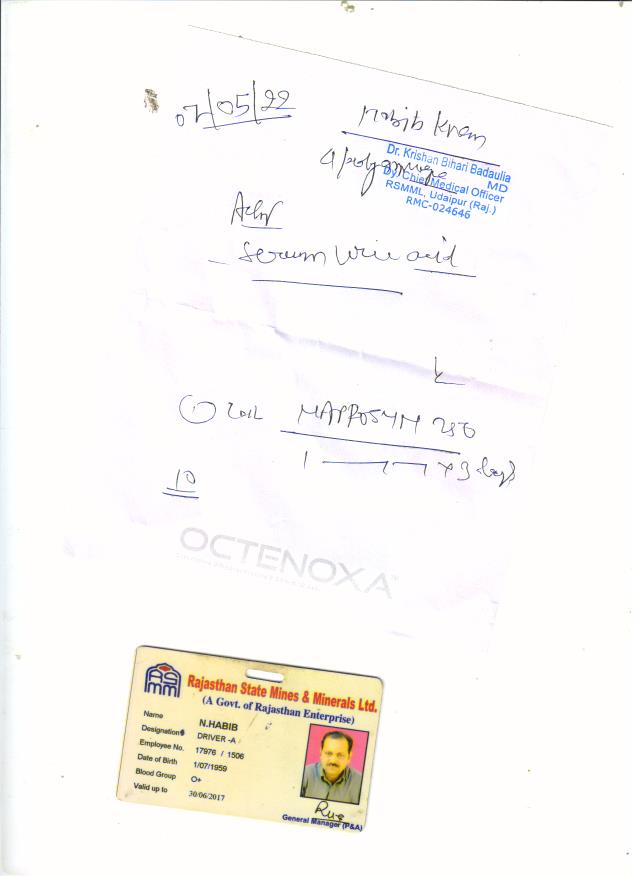 07/05/22
Habib Khan
Dr. Krishan Bihari Badaulia
MD
Dy. Chief Medical Officer
RSMML, Udaipur (Raj.)
RMC-024646
Adv
- Serum Uric acid
① Tab NAPROSYN 250
1 — x 3 days
10
OCTENOXA™
RSMM
Rajasthan State Mines & Minerals Ltd.
(A Govt. of Rajasthan Enterprise)
Name N.HABIB
Designation DRIVER -A
Employee No. 17976 / 1506
Date of Birth 1/07/1959
Blood Group O+
Valid up to 30/06/2017
General Manager (P&A)